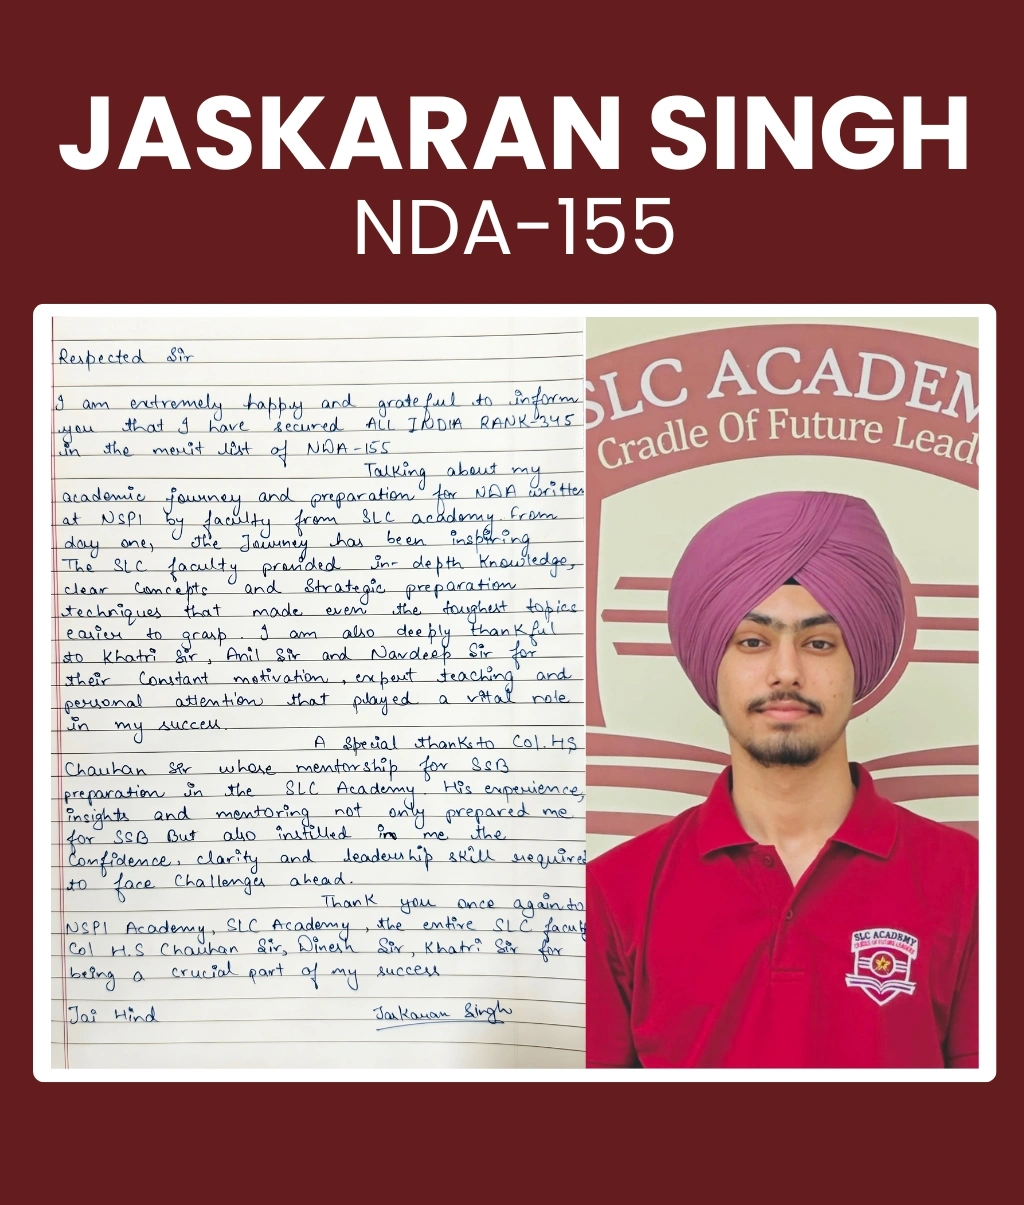 JASKARAN SINGH
NDA-155
Respected Sir
I am extremely happy and grateful to inform
you that I have secured ALL INDIA RANK-345
in the merit list of NDA-155
Talking about my
academic journey and preparation for NDA written
at NSPI by faculty from SLC academy. From
day one, the Journey has been inspiring
The SLC faculty provided in-depth knowledge,
clear Concepts and Strategic preparation
techniques that made even the toughest topics
easier to grasp. I am also deeply thankful
to Khatri Sir, Anil Sir and Navdeep Sir for
their Constant motivation, expert teaching and
personal attention that played a vital role
in my success.
A Special thanks to Col. HS
Chauhan Sir whose mentorship for SSB
preparation in the SLC Academy. His experience,
insights and mentoring not only prepared me
for SSB But also instilled in me the
Confidence, clarity and leadership skill required
to face Challenges ahead.
Thank you once again to
NSPI Academy, SLC Academy, the entire SLC facult
Col H.S Chauhan Sir, Dinesh Sir, Khatri Sir for
being a crucial part of my success
Jai Hind Jaskaran Singh
SLC ACADEM
Cradle Of Future Lead
SLC ACADEMY
CRADLE OF FUTURE LEADERS